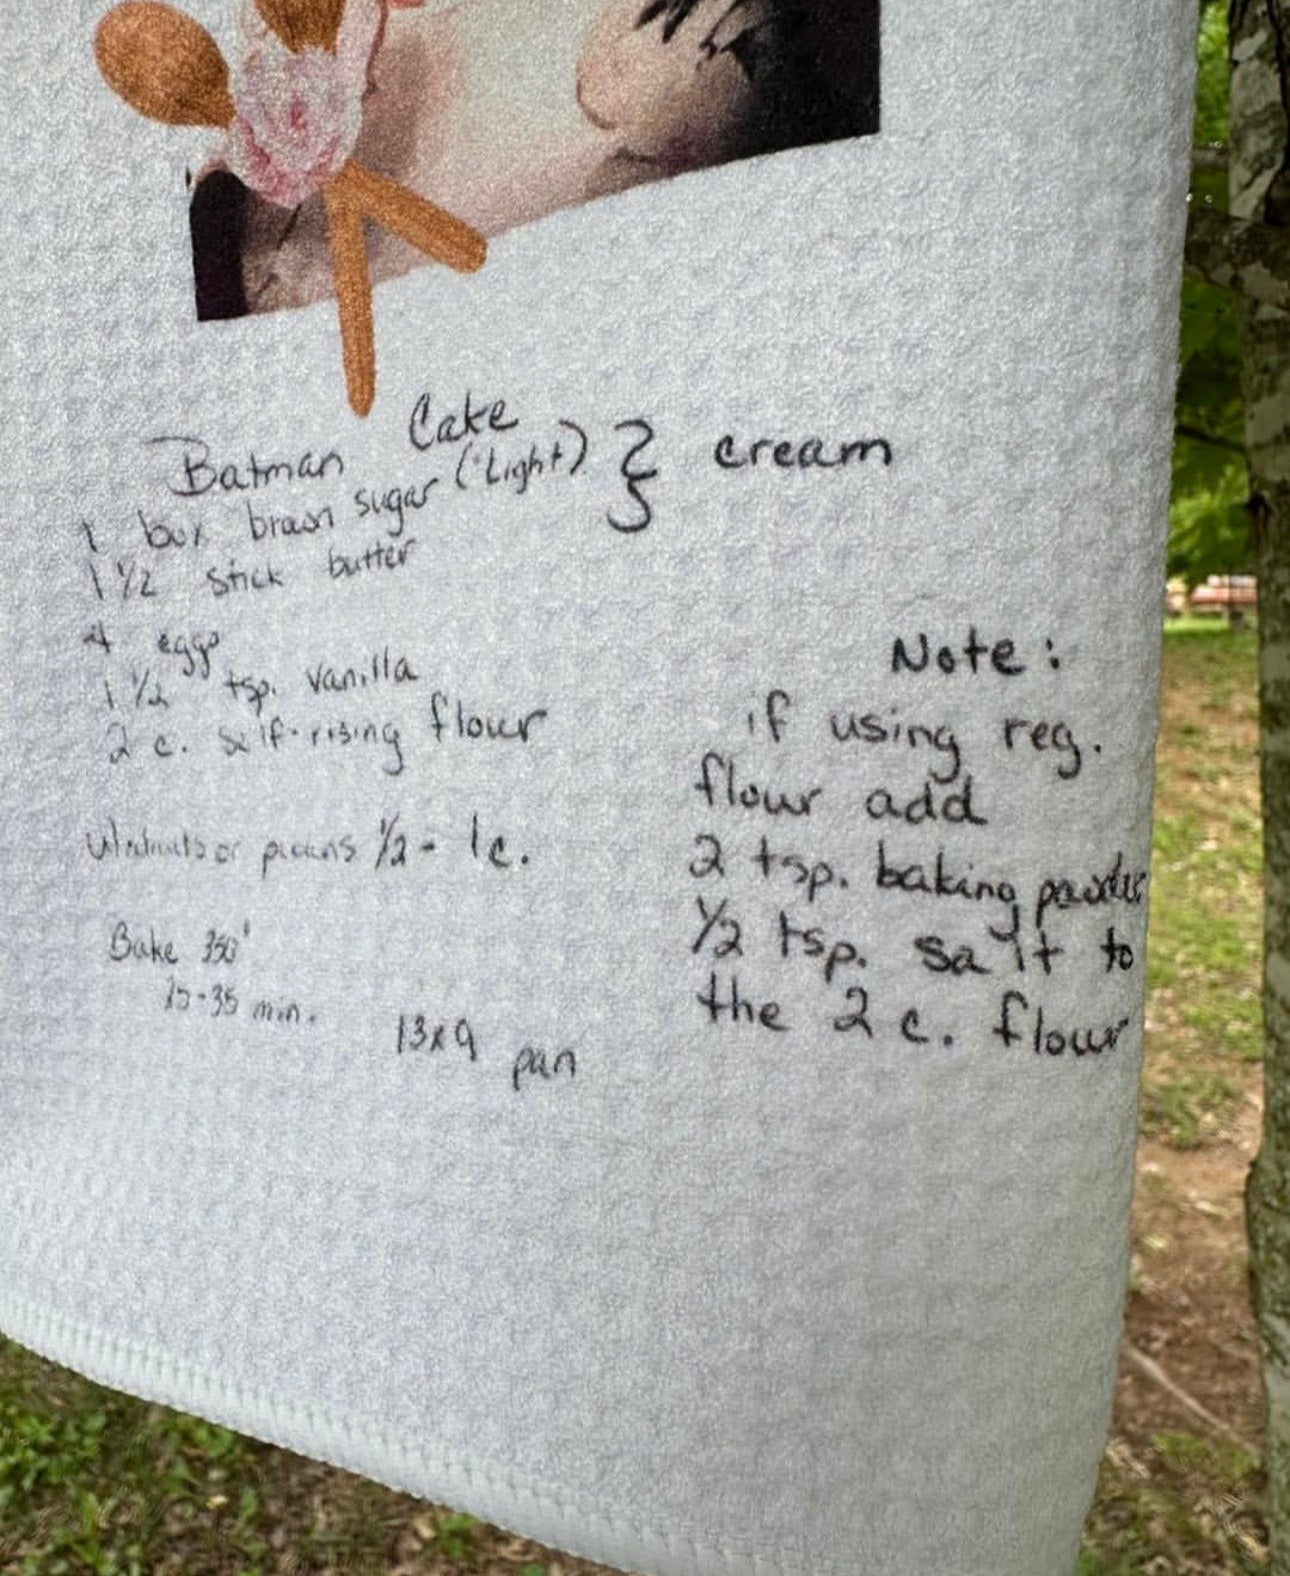 Batman Cake
1 box brown sugar (Light) } cream
1 1/2 stick butter
4 eggs
1 1/2 tsp. vanilla
2 c. self-rising flour
walnuts or pecans 1/2 - 1c.
Bake 350°
25-35 min.
13x9 pan
Note:
if using reg.
flour add
2 tsp. baking powder
1/2 tsp. salt to
the 2 c. flour